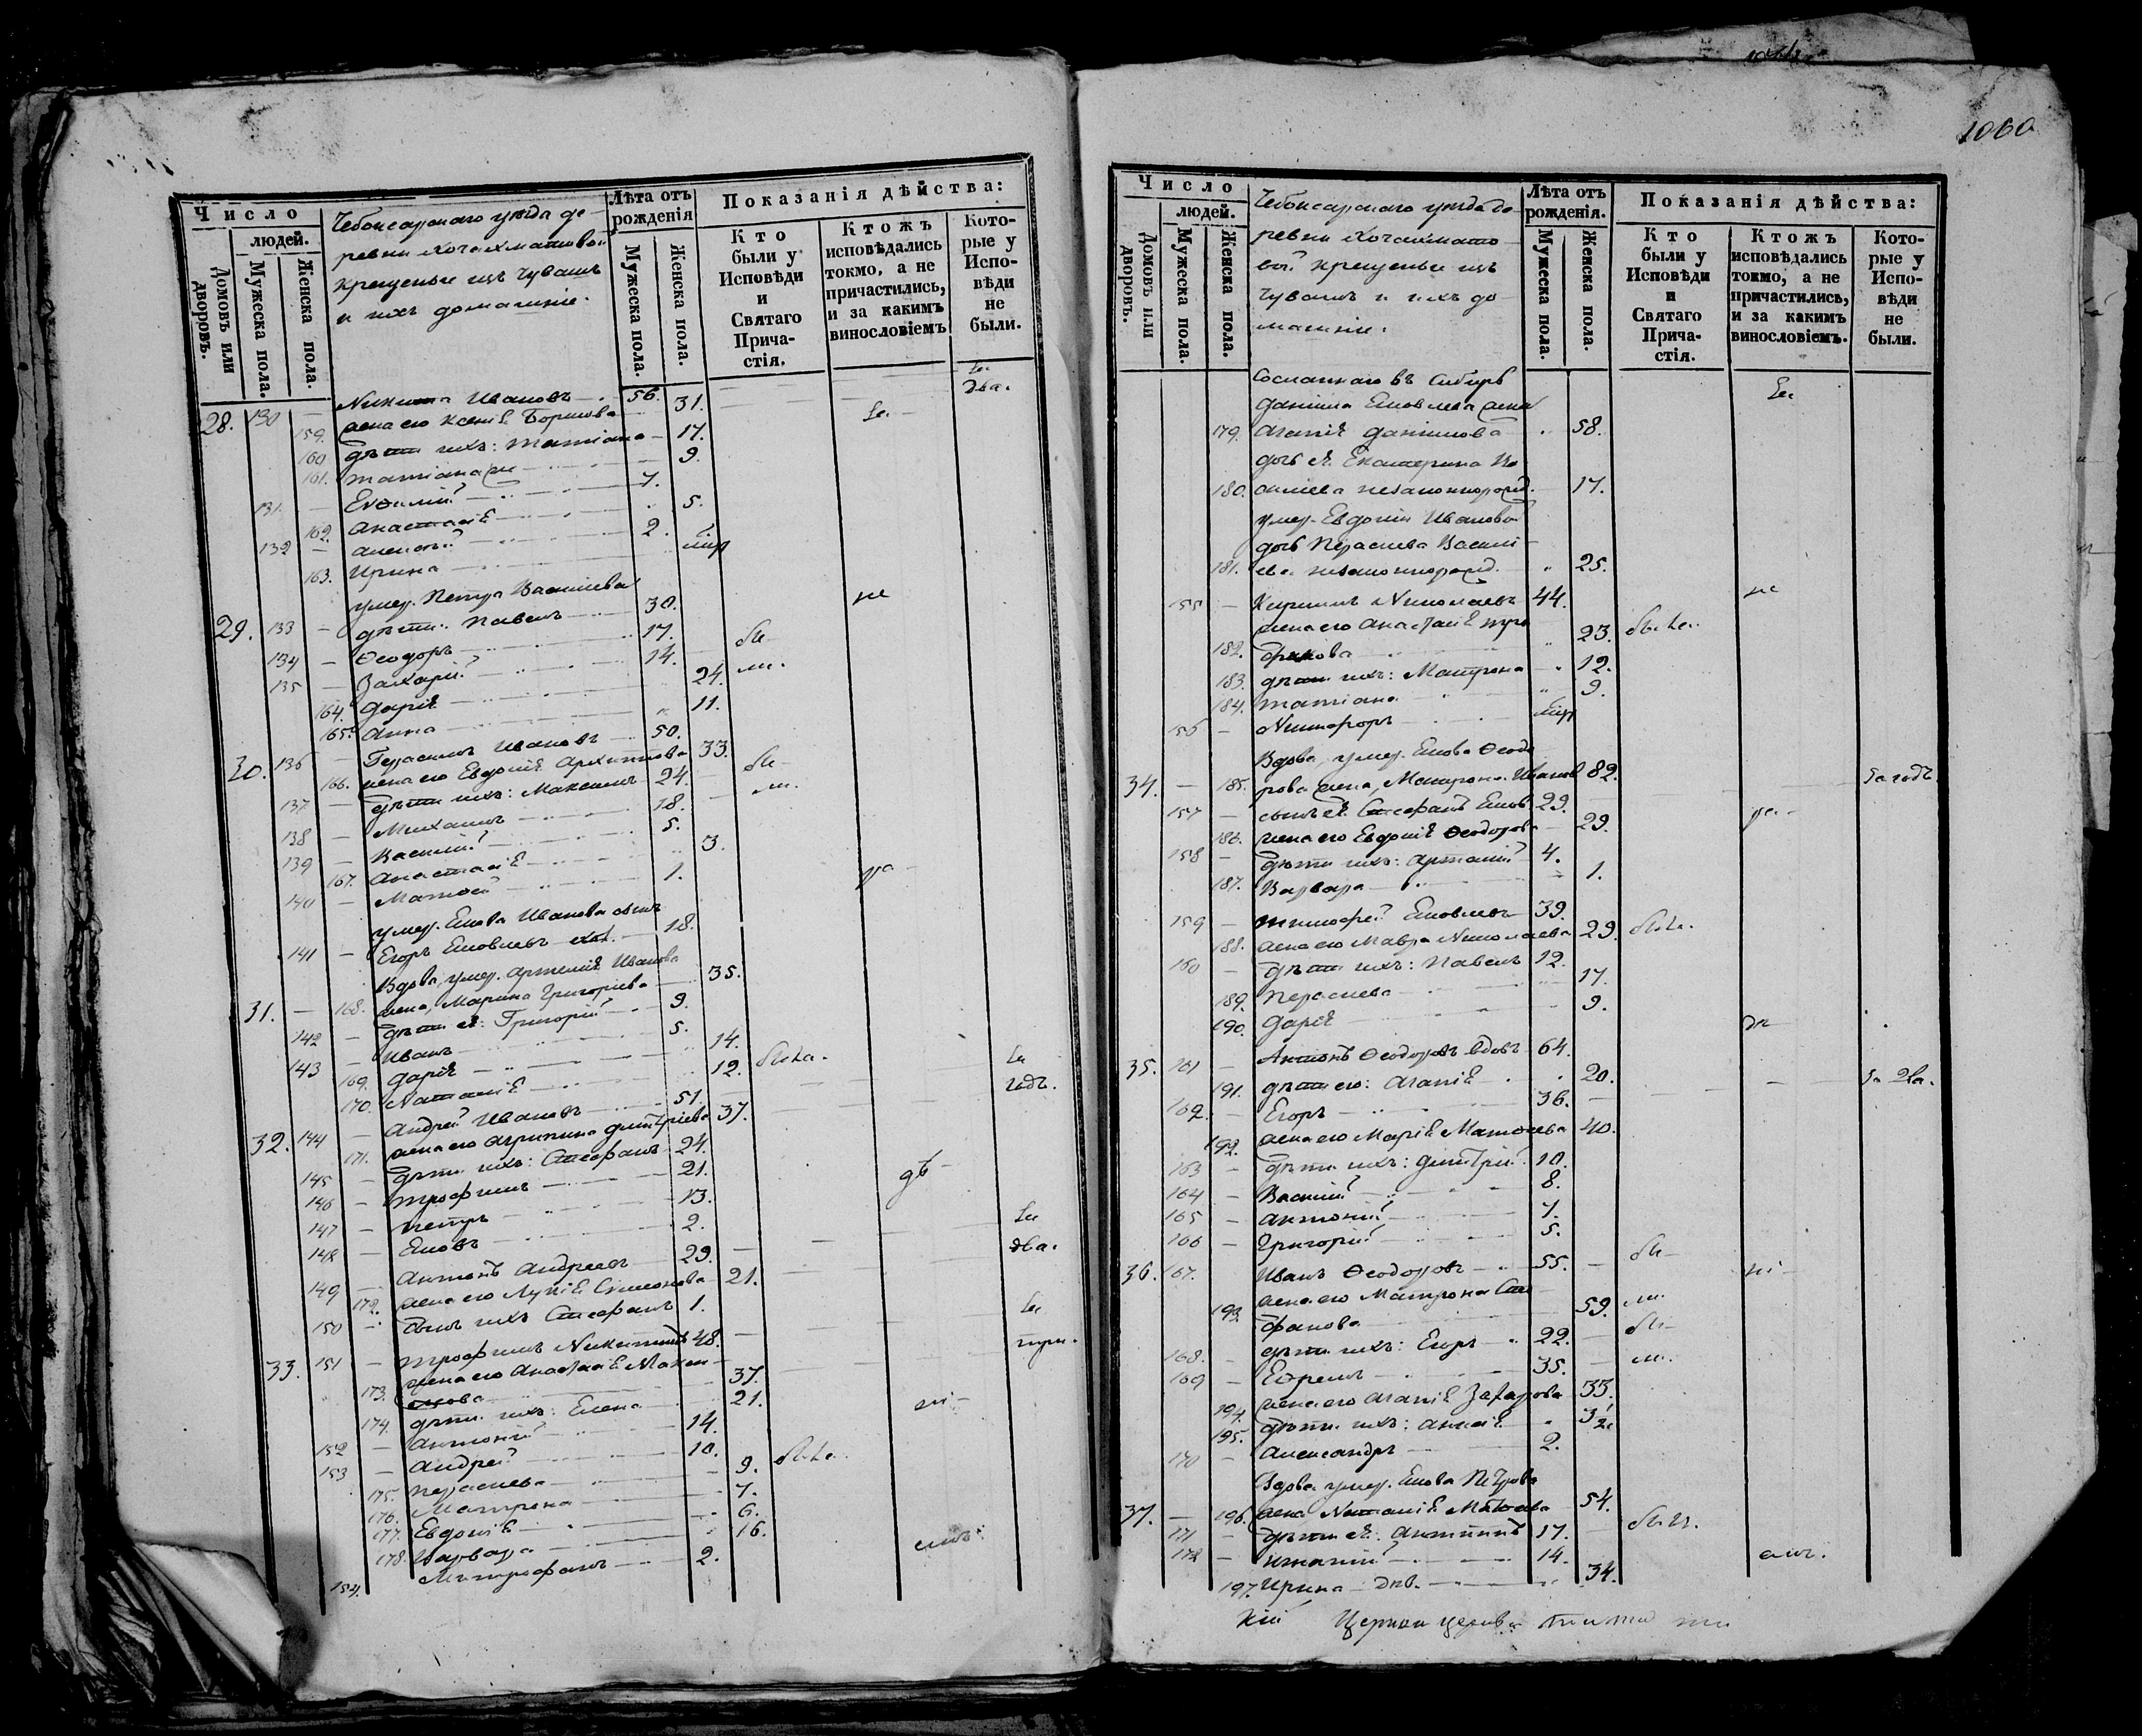 1060
Число
людей.
Домовъ или дворовъ.
Мужеска пола.
Женска пола.
Чебоксарскаго уѣзда де-
ревни Хочахматовой
крещеные изъ Чувашъ
и ихъ домашніе.
Лѣта отъ рожденія
Мужеска пола.
Женска пола.
Показанія дѣйства:
Кто были у Исповѣди и Святаго Прича-стія.
Ктожъ исповѣдались токмо, а не причастились, и за какимъ винословіемъ
Кото-рые у Испо-вѣди не были.
28. 130 — Никита Ивановъ — 56.
два.
159. жена его Ксенія Борисова 31.
160 дѣти ихъ: Татіана — 17.
161. Татіана же 9.
131. — Евѳимій 7.
162. Анастасія 5.
132 — Алексѣй 2.
163. Ирина
умер. Петра Васильева
29. 133 — дѣти: Павелъ 30.
134 — Ѳеодоръ 17.
135 — Захарій 14.
164. Дарія 24.
165. Анна 11.
30. 136 — Герасимъ Ивановъ 50.
166. жена его Евдокія Архипова 33.
137 — дѣти ихъ: Максимъ 24.
138 — Михаилъ 18.
139 — Василій 5.
167. Анастасія 3.
140 — Матвей 1.
умер. Якова Иванова сынъ
141 — Егоръ Яковлевъ 18.
Вдова, умер. Артемія Иванова
31. — 168. жена, Марина Григоріева 35.
142 — дѣти ея: Григорій 9.
143 — Иванъ 5.
169. Дарія 14.
170. Наталія 12.
годъ.
32. 144 — Андрей Ивановъ 51.
171. жена его Агрипина Димитріева 37.
145 — дѣти ихъ: Стефанъ 24.
146 — Трофимъ 21.
147 — Петръ 13.
148 — Яковъ 2.
два.
149 — Антонъ Андреевъ 29.
172. жена его Лукія Симеонова 21.
150 — сынъ ихъ Стефанъ 1.
33. 151 — Трофимъ Никитинъ 48.
три.
173. жена его Анастасія Макси-
мова 37.
174. дѣти ихъ: Елена 21.
152 — Антоній 14.
153 — Андрей 10.
175. Параскева 9.
176. Матрона 7.
177. Евдокія 6.
178. Варвара 16.
154. Митрофанъ 2.
Число
людей.
Домовъ или дворовъ.
Мужеска пола.
Женска пола.
Чебоксарскаго уѣзда де-
ревни Хочахмато-
вой крещеные изъ
Чувашъ и ихъ до-
машніе.
Лѣта отъ рожденія.
Мужеска пола.
Женска пола.
Показанія дѣйства:
Кто были у Исповѣди и Святаго Прича-стія.
Ктожъ исповѣдались токмо, а не причастились, и за какимъ винословіемъ.
Кото-рые у Испо-вѣди не были.
Сосланнаго въ Сибирь
Даніила Яковлева жена
179. Агапія Даніилова 58.
дочь ея Екатерина
180. незаконнорожд. 17.
умер. Евдокіи Ивановой
дочь Параскева Василі-
181. ева незаконнорожд. 25.
155 — Кириллъ Николаевъ 44.
182. жена его Анастасія Тро-
фимова 23.
183. дѣти ихъ: Матрона 12.
184. Татіана 9.
156 — Никифоръ
Вдова, умер. Якова Ѳеодо-
34. — 185. рова жена, Матрона Иванов. 82.
за годъ.
157 — сынъ ея Стефанъ Яков. 29.
186. жена его Евдокія Ѳеодорова 29.
158 — дѣти ихъ: Артемій 4.
187. Варвара 1.
159 — Тимофей Яковлевъ 39.
188. жена его Мавра Николаева 29.
160 — дѣти ихъ: Павелъ 12.
189. Параскева 17.
190. Дарія 9.
35. 161 — Антонъ Ѳеодоровъ вдовъ 64.
191. дѣти его: Агапія 20.
за два.
162. — Егоръ 36.
192. жена его Марія Матвеева 40.
163 — дѣти ихъ: Димитрій 10.
164 — Василій 8.
165 — Антоній 7.
166 — Григорій 5.
36. 167. Иванъ Ѳеодоровъ 55.
193. жена его Матрона Сте-
фанова 59.
168. — дѣти ихъ: Егоръ 22.
169 — Ефремъ 35.
194. жена его Агапія Захарова 33.
195. дѣти ихъ:
170 — Александръ 2.
Вдова умер. Якова Петрова
37. — 196. жена Наталія Матвеева 54.
171 — дѣти ея: Антипъ 17.
172 — Игнатій 14.
197. Ирина 34.